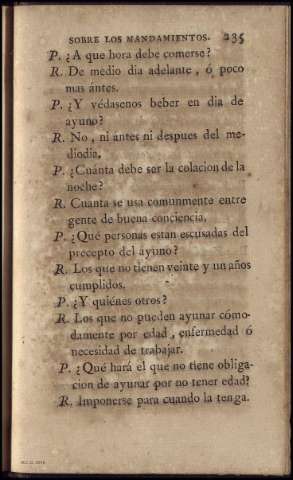 SOBRE LOS MANDAMIENTOS. 235
P. ¿A que hora debe comerse?
R. De medio dia adelante, ó poco
mas ántes.
P. ¿Y védasenos beber en dia de
ayuno?
R. No, ni antes ni despues del me-
diodia.
P. ¿Cuánta debe ser la colacion de la
noche?
R. Cuanta se usa comunmente entre
gente de buena conciencia.
P. ¿Qué personas estan escusadas del
precepto del ayuno?
R. Los que no tienen veinte y un años
cumplidos.
P. ¿Y quiénes otros?
R. Los que no pueden ayunar cómo-
damente por edad, enfermedad ó
necesidad de trabajar.
P. ¿Qué hará el que no tiene obliga-
cion de ayunar por no tener edad?
R. Imponerse para cuando la tenga.